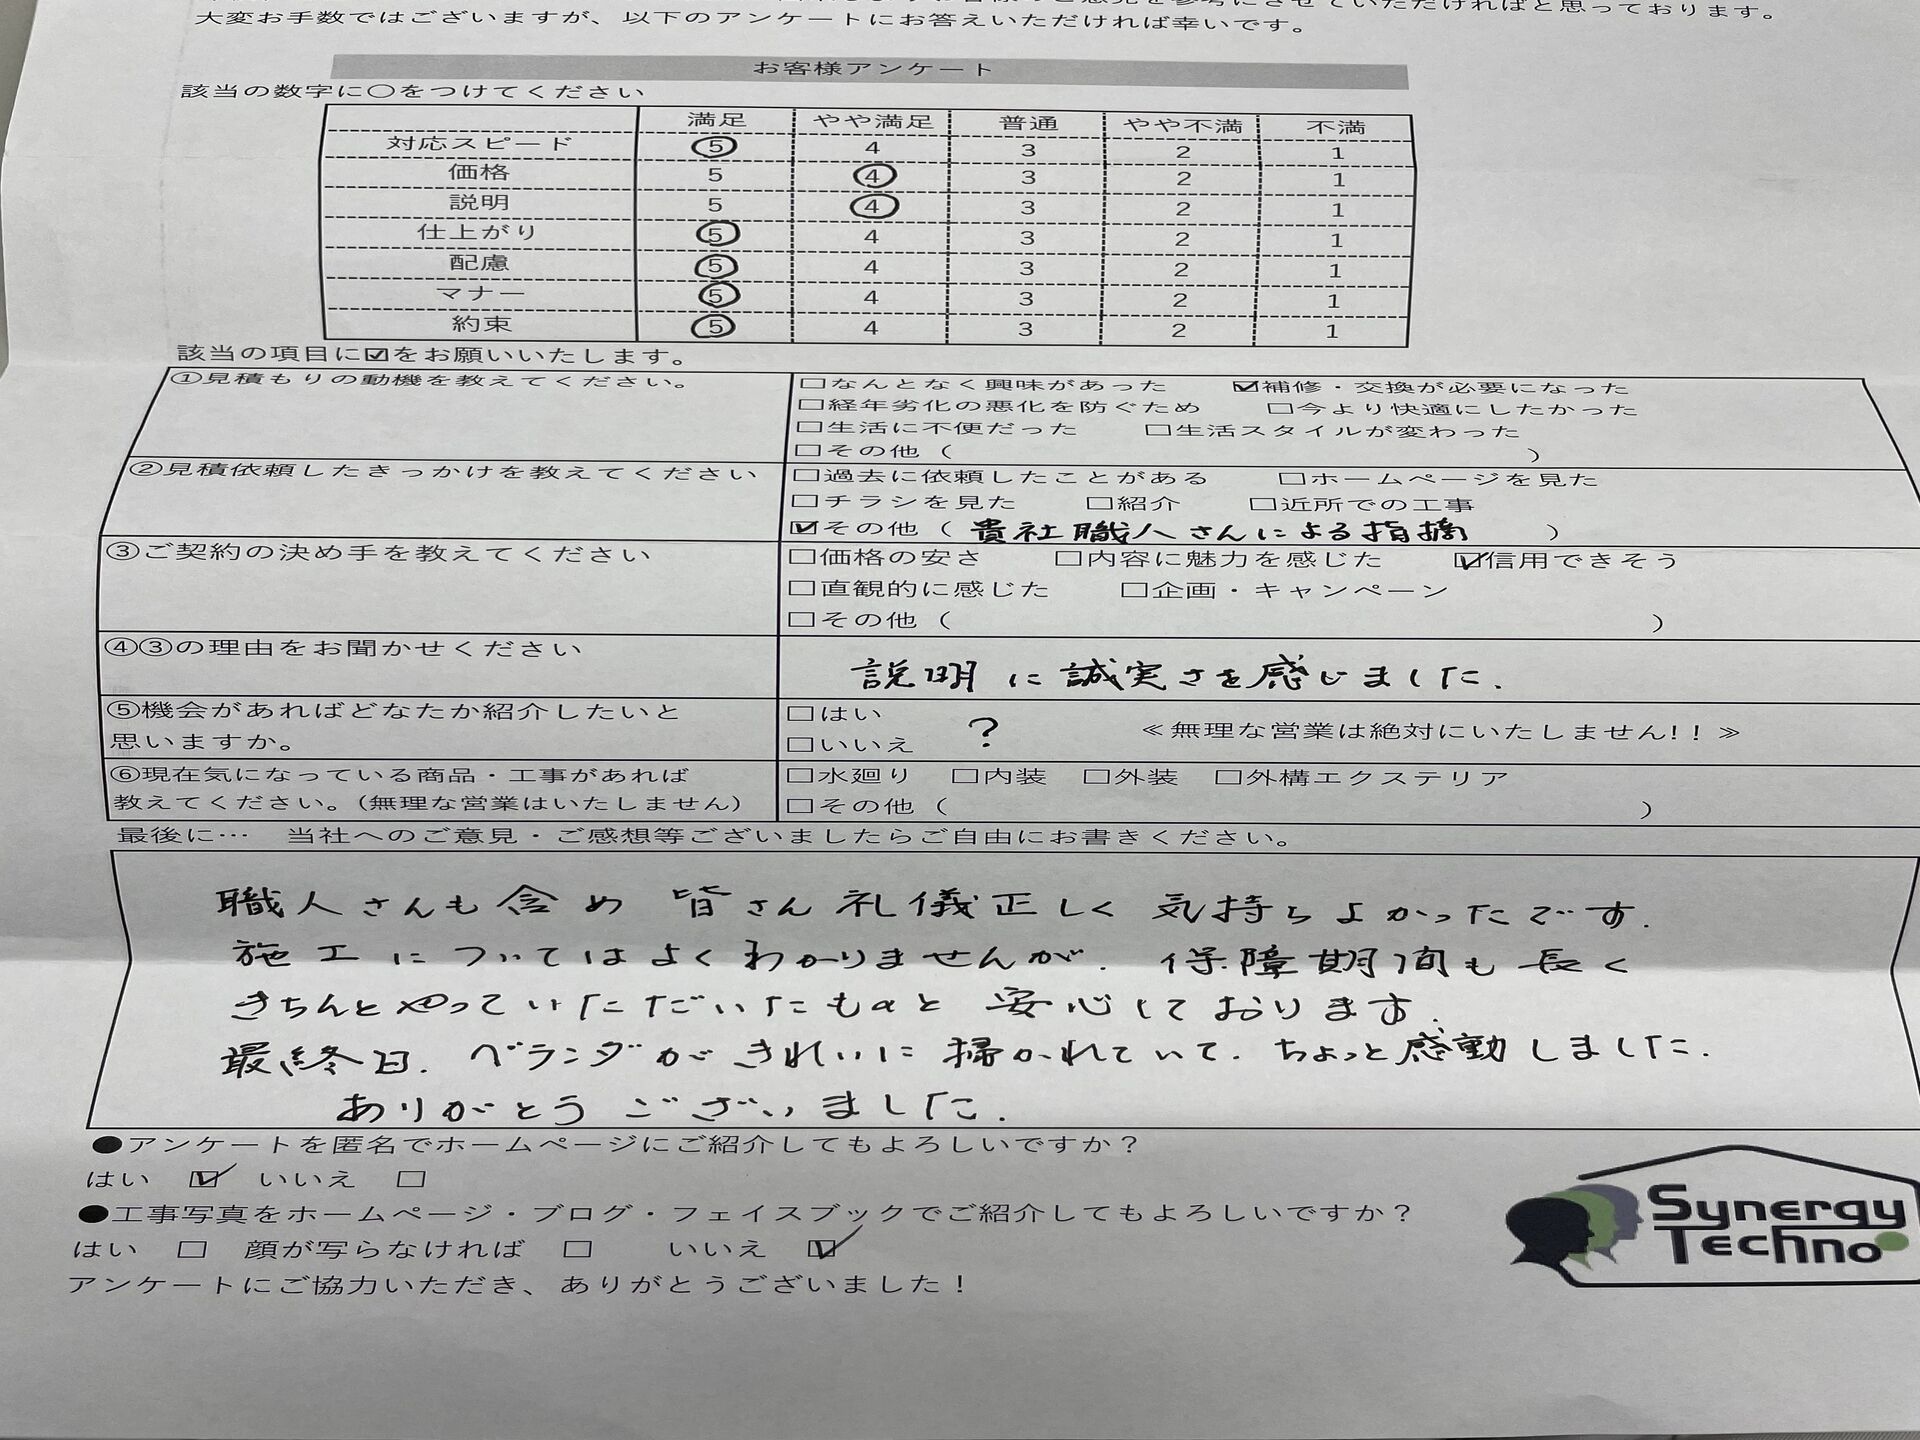 大変お手数ではございますが、以下のアンケートにお答えいただければ幸いです。
お客様アンケート
該当の数字に○をつけてください
満足 やや満足 普通 やや不満 不満
対応スピード 5 4 3 2 1
価格 5 4 3 2 1
説明 5 4 3 2 1
仕上がり 5 4 3 2 1
配慮 5 4 3 2 1
マナー 5 4 3 2 1
約束 5 4 3 2 1
該当の項目に☑をお願いいたします。
①見積もりの動機を教えてください。 □なんとなく興味があった ☑補修・交換が必要になった
□経年劣化の悪化を防ぐため □今より快適にしたかった
□生活に不便だった □生活スタイルが変わった
□その他（ ）
②見積依頼したきっかけを教えてください □過去に依頼したことがある □ホームページを見た
□チラシを見た □紹介 □近所での工事
☑その他（貴社職人さんによる指摘）
③ご契約の決め手を教えてください □価格の安さ □内容に魅力を感じた ☑信用できそう
□直観的に感じた □企画・キャンペーン
□その他（ ）
④③の理由をお聞かせください 説明に誠実さを感じました.
⑤機会があればどなたか紹介したいと □はい ? ≪無理な営業は絶対にいたしません!！≫
思いますか。 □いいえ
⑥現在気になっている商品・工事があれば □水廻り □内装 □外装 □外構エクステリア
教えてください。（無理な営業はいたしません） □その他（ ）
最後に… 当社へのご意見・ご感想等ございましたらご自由にお書きください。
職人さんも含め 皆さん礼儀正しく 気持ちよかったです.
施工についてはよくわかりませんが. 保障期間も長く
きちんとやっていただいたものと 安心しております.
最終日. ベランダがきれいに掃かれていて. ちょっと感動しました.
ありがとうございました.
●アンケートを匿名でホームページにご紹介してもよろしいですか？
はい ☑ いいえ □
●工事写真をホームページ・ブログ・フェイスブックでご紹介してもよろしいですか？
はい □ 顔が写らなければ □ いいえ ☑
アンケートにご協力いただき、ありがとうございました！
Synergy
Techno